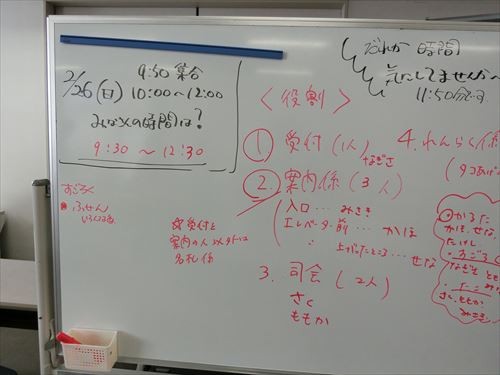 2/26(日) 9:30 集合
10:00〜12:00
みんなの時間は?
9:30 〜 12:30
すごろく
ふせん
☆受付と
案内の人以外は
名札係
だれか 時間
気にしてませんか〜
11:50分です
〈役割〉
① 受付 (1人)
なぎさ
② 案内係 (3人)
入口… みさき
エレベーター前… かほ
〃 上がったところ… せな
3. 司会 (2人)
さく
ももか
4. れんらく係
(タコあげ
かるた
かほ、せな、
たけし
すごろく
なぎさ
たこ
さく、ももか
みさき